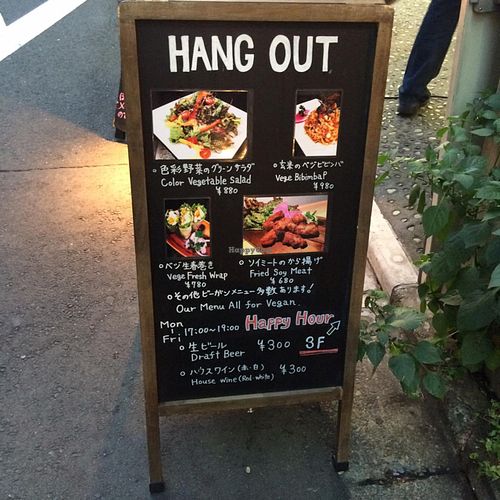 HANG OUT
○色彩野菜のグリーンサラダ
Color Vegetable Salad
¥880
○玄米のベジビビンバ
Vege Bibimbap
¥980
○ベジ生春巻き
Vege Fresh Wrap
¥780
○ソイミートのから揚げ
Fried Soy Meat
¥680
○その他ビーガンメニュー多数あります!
Our Menu All for Vegan.
Mon | Fri 17:00~19:00 Happy Hour
○生ビール ¥300 3F
Draft Beer
○ハウスワイン(赤・白) ¥300
House wine (Red・white)